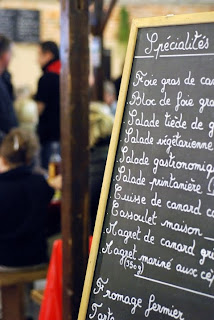 Spécialités
Foie gras de ca
Bloc de foie gra
Salade tiède de g
Salade végétarienne
Salade gastronomiq
Salade printanière
Cuisse de canard c
Cassoulet maison
Magret de canard gri
Magret mariné aux cèp
(350g)
Fromage fermier
Tart